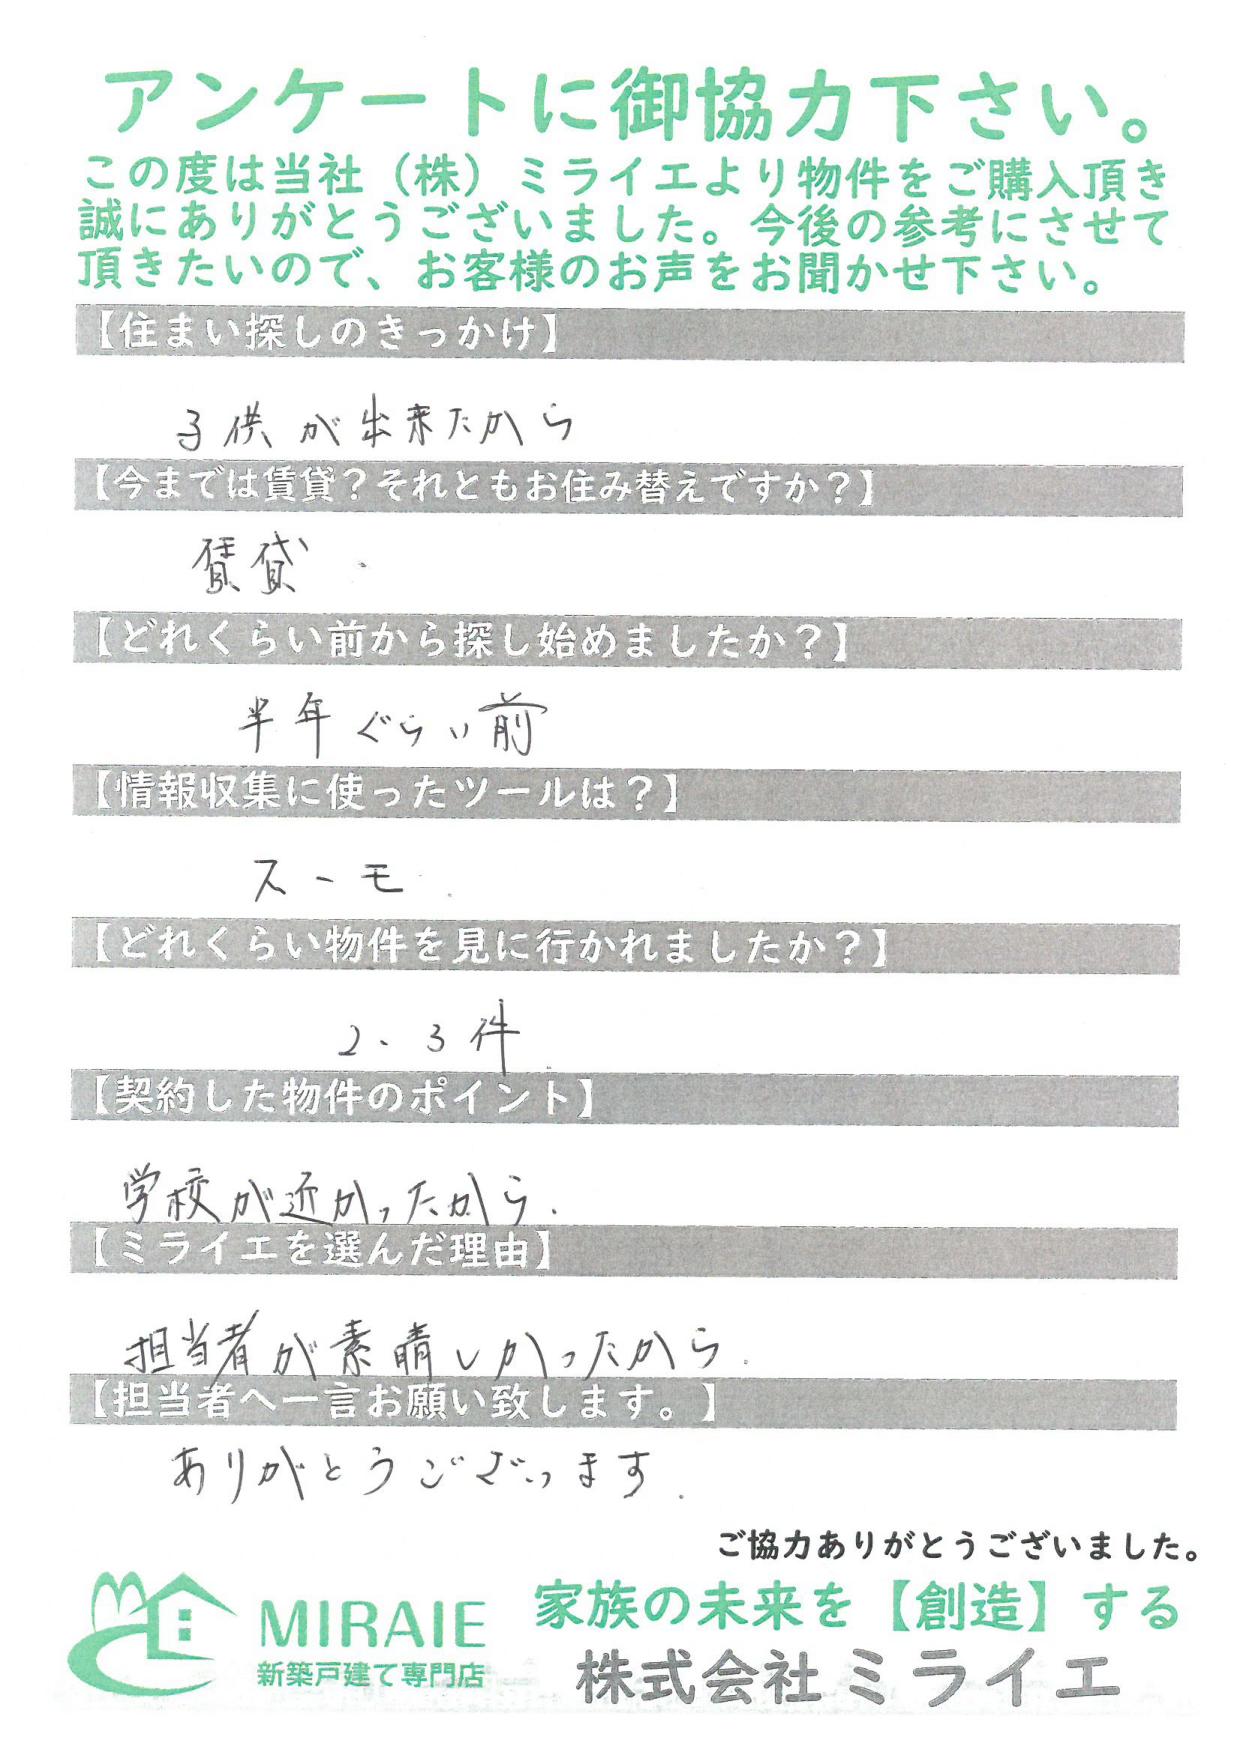 アンケートに御協力下さい。
この度は当社（株）ミライエより物件をご購入頂き
誠にありがとうございました。今後の参考にさせて
頂きたいので、お客様のお声をお聞かせ下さい。
【住まい探しのきっかけ】
子供が出来たから
【今までは賃貸？それともお住み替えですか？】
賃貸
【どれくらい前から探し始めましたか？】
半年ぐらい前
【情報収集に使ったツールは？】
スーモ
【どれくらい物件を見に行かれましたか？】
2、3件
【契約した物件のポイント】
学校が近かったから.
【ミライエを選んだ理由】
担当者が素晴しかったから.
【担当者へ一言お願い致します。】
ありがとうございます.
ご協力ありがとうございました。
MIRAIE
新築戸建て専門店
家族の未来を【創造】する
株式会社ミライエ